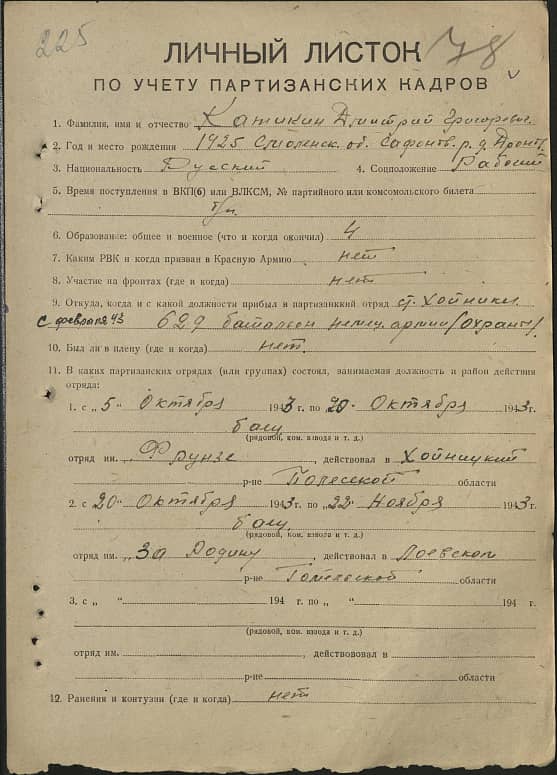 225
78
ЛИЧНЫЙ ЛИСТОК
ПО УЧЕТУ ПАРТИЗАНСКИХ КАДРОВ
1. Фамилия, имя и отчество Катикин Дмитрий Григорьевич
2. Год и место рождения 1925 Смоленск. об. Сафонов. р. д.
3. Национальность Русский 4. Соцположение Рабочий
5. Время поступления в ВКП(б) или ВЛКСМ, № партийного или комсомольского билета
б/п
6. Образование: общее и военное (что и когда окончил) 4
7. Каким РВК и когда призван в Красную Армию нет
8. Участие на фронтах (где и когда) нет
9. Откуда, когда и с какой должности прибыл в партизанкий отряд ст. Хойники
с февраля 43 629 батальон немец. армии (охрана).
10. Был ли в плену (где и когда) нет.
11. В каких партизанских отрядах (или группах) состоял, занимаемая должность и район действия
отряда:
1. с „5“ Октября 1943 г. по „20“ Октября 1943 г.
боец
(рядовой, ком. взвода и т. д.)
отряд им. „Фрунзе“, действовал в Хойницкий
р-не Полесской области
2. с „20“ Октября 1943 г. по „22“ Ноября 1943 г.
боец
(рядовой, ком. взвода и т. д.)
отряд им. „За Родину“, действовал в Лоевском
р-не Гомельской области
3. с „ “ 194 г. по „ “ 194 г.
(рядовой, ком. взвода и т. д.)
отряд им. , действововал в
р-не области
12. Ранения и контузии (где и когда) нет